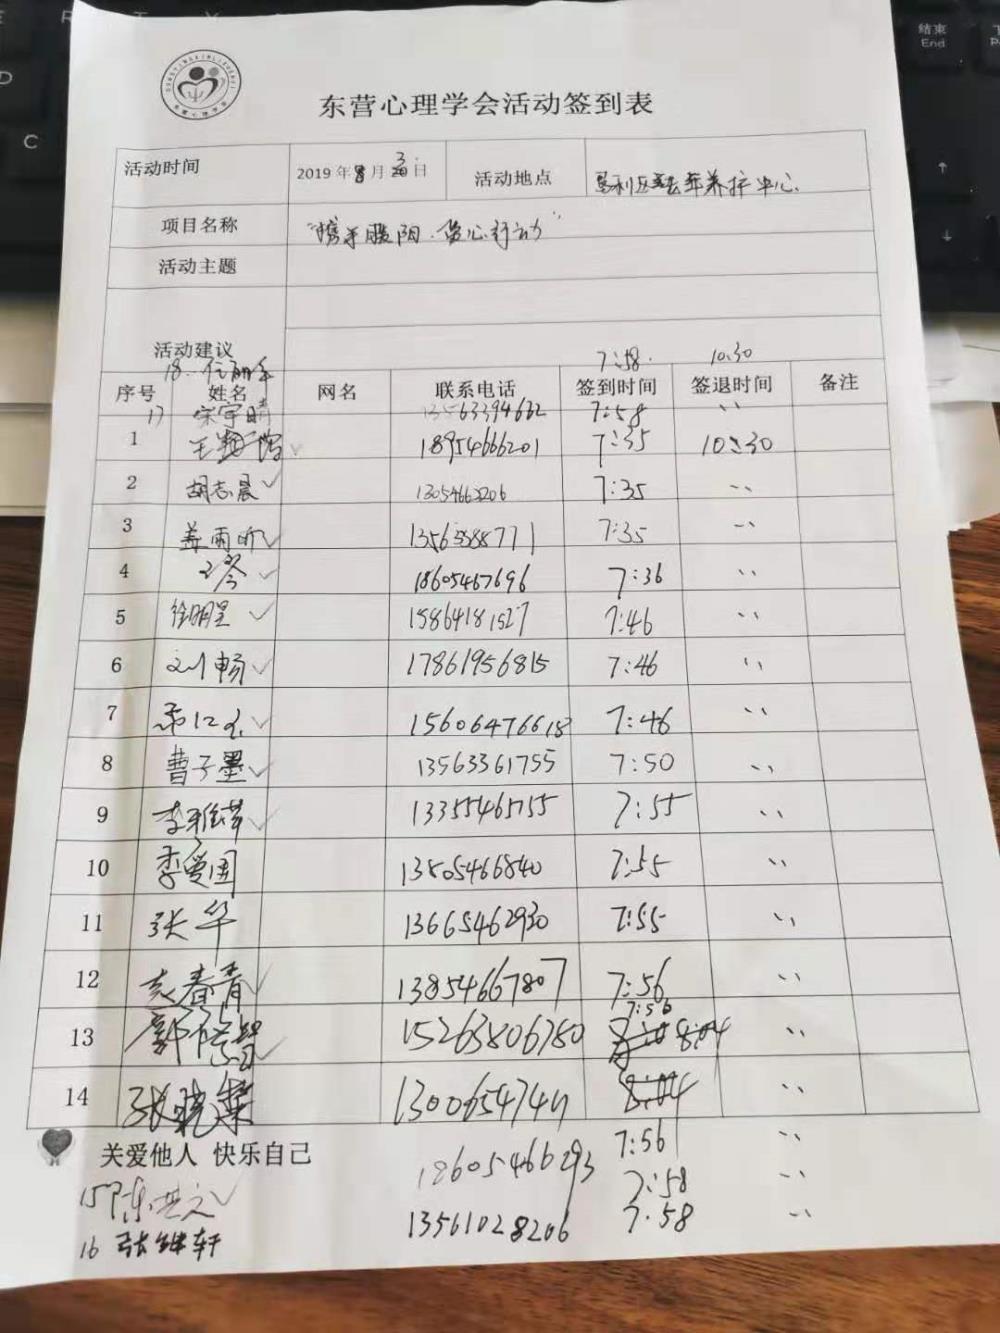 结束
End
C
D
东营心理学会活动签到表
活动时间 2019年8月3日 活动地点 垦利区老年养护中心
项目名称 "携手暖阳·爱心行动"
活动主题
活动建议
18. 7:58. 10:30
序号 姓名 网名 联系电话 签到时间 签退时间 备注
17 宋宇晴 13563394662 7:58 、、
1 18954666201 7:35 10:30
2 胡志晨 13054663206 7:35 、、
3 姜雨昕 7:35 、、
4 18605467696 7:36 、、
5 徐明星 15864181527 7:46 、、
6 刘畅 17861956815 7:46 、、
7 15606476618 7:46 、、
8 曹子墨 13563361755 7:50 、、
9 13355465755 7:55 、、
10 李爱国 13805466840 7:55 、、
11 张华 13665462930 7:55 、、
12 春青 13854667807 7:56 、、
13 15263806780 7:56 、、
14 张晓 、、
关爱他人 快乐自己 7:56 、、
15 陈 18605466293 7:58 、、
16 张继轩 13561028206 7:58 、、